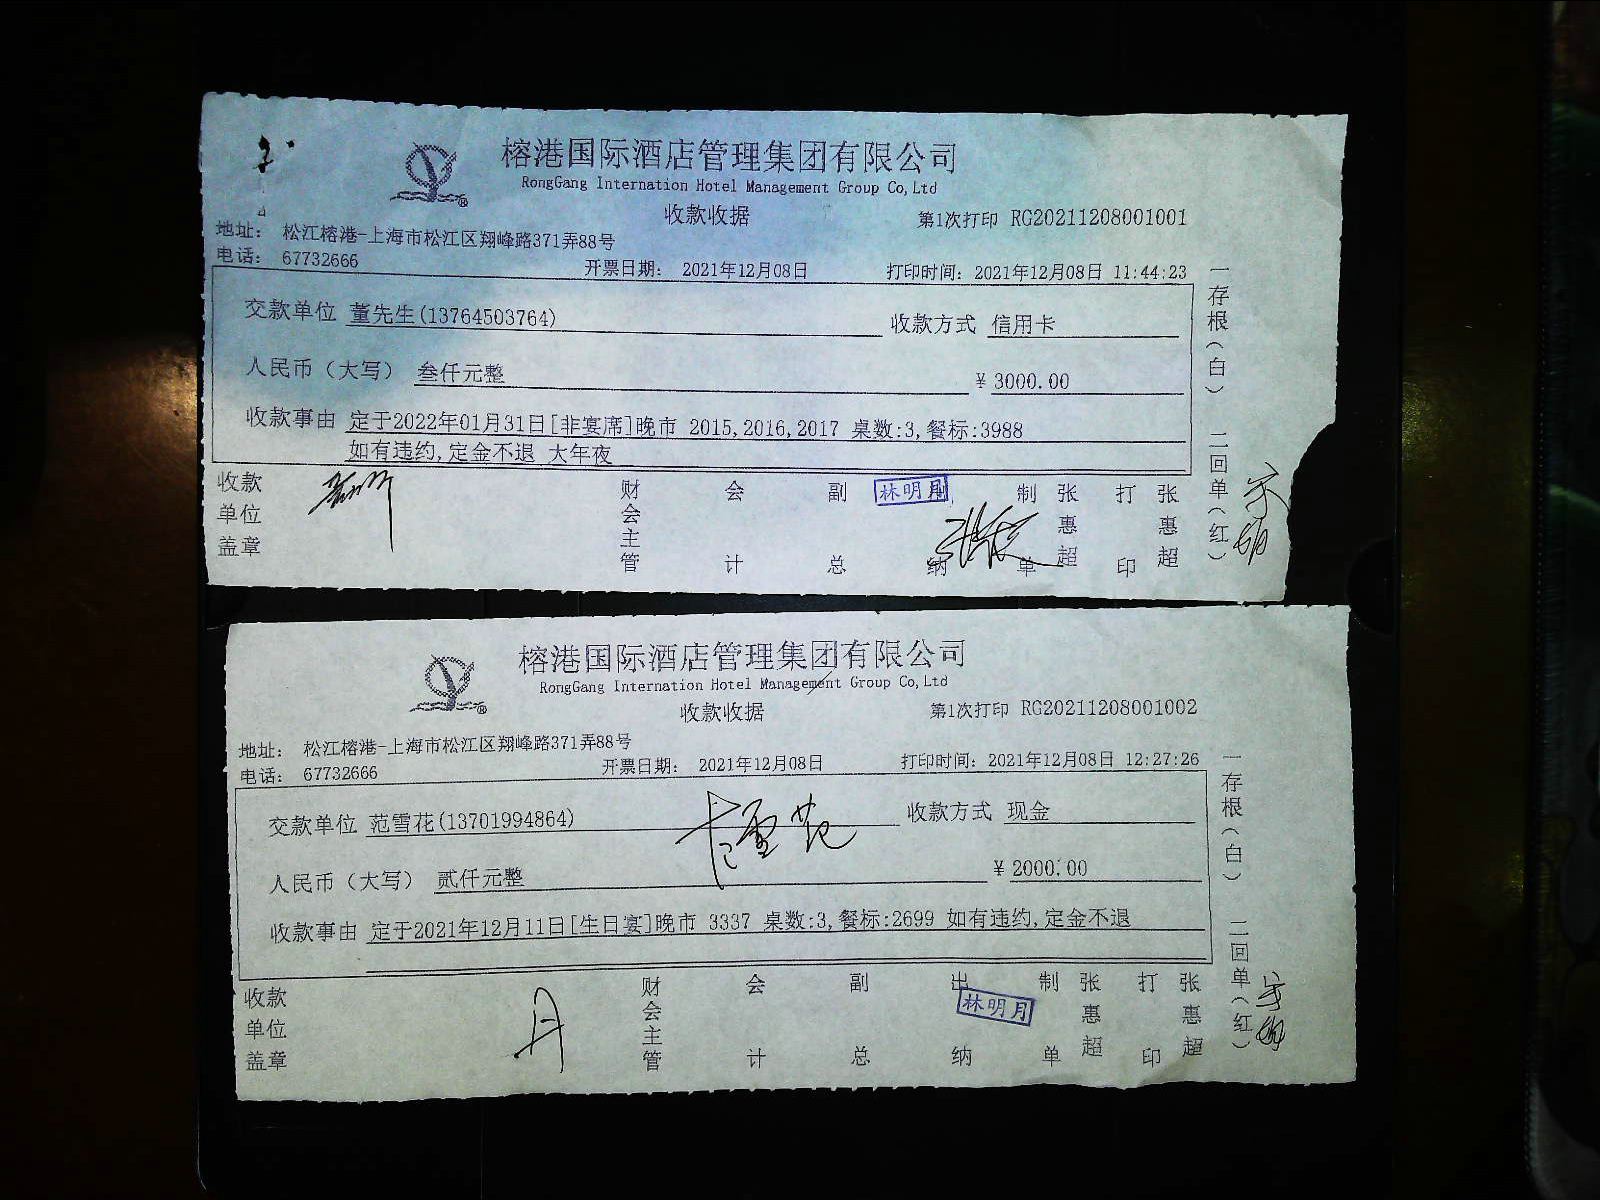 榕港国际酒店管理集团有限公司
RongGang Internation Hotel Management Group Co,Ltd
收款收据
第1次打印 RG20211208001001
地址： 松江榕港-上海市松江区翔峰路371弄88号
电话： 67732666
开票日期： 2021年12月08日
打印时间： 2021年12月08日 11:44:23
交款单位 董先生(13764503764)
收款方式 信用卡
人民币（大写） 叁仟元整
¥ 3000.00
收款事由 定于2022年01月31日[非宴席]晚市 2015,2016,2017 桌数:3,餐标:3988
如有违约,定金不退 大年夜
收款单位盖章
财会主管
会计
副总
林明月
纳
制单
张惠超
打印
张惠超
一存根（白） 二回单（红）
榕港国际酒店管理集团有限公司
RongGang Internation Hotel Management Group Co,Ltd
收款收据
第1次打印 RG20211208001002
地址： 松江榕港-上海市松江区翔峰路371弄88号
电话： 67732666
开票日期： 2021年12月08日
打印时间： 2021年12月08日 12:27:26
交款单位 范雪花(13701994864)
收款方式 现金
人民币（大写） 贰仟元整
¥ 2000.00
收款事由 定于2021年12月11日[生日宴]晚市 3337 桌数:3,餐标:2699 如有违约,定金不退
收款单位盖章
财会主管
会计
副总
出纳
林明月
制单
张惠超
打印
张惠超
一存根（白） 二回单（红）